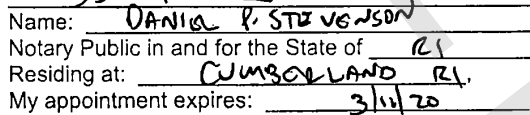 Name: DANIEL P. STEVENSON
Notary Public in and for the State of RI
Residing at: CUMBERLAND RI.
My appointment expires: 3/11/20